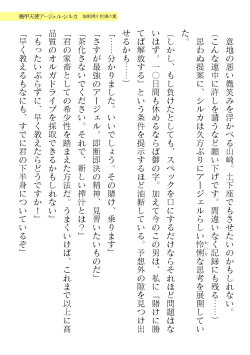 機甲天使アージェルシルカ
意地の悪い微笑みを浮かべる山崎。土下座でもさせたいのかもしれない。
（こんな連中に許しを請うなど願い下げです。間違いなく記録にも残る……）
思わぬ提案に、シルカは久方ぶりにアージェルらしい怜悧な思考を展開してい
た。
（しかし、もし負けたとしても、スペックを口にするだけならそれほど問題はな
いはず。一〇日間も休めるならば御の字です。この男は、私に『賭けに勝
てば解放される』という希望を提示するほど油断している。予想外の隙を見つけ出
せるかも……）
「……分かりました。いいでしょう。その賭け、乗ります」
「さすが最強のアージェル、即断即決の精神、見習いたいものだ」
「茶化さないでください。それで、新しい搾汁とは？」
「君の家畜としての希少性を踏まえた方法だ。うまくいけば、これまで以上に高
品質のオルガドライブを採取できるかもしれない」
「もったいぶらずに、早く教えたらどうですか！」
「早く教えるもなにも、すでに君の下半身についているぞ」